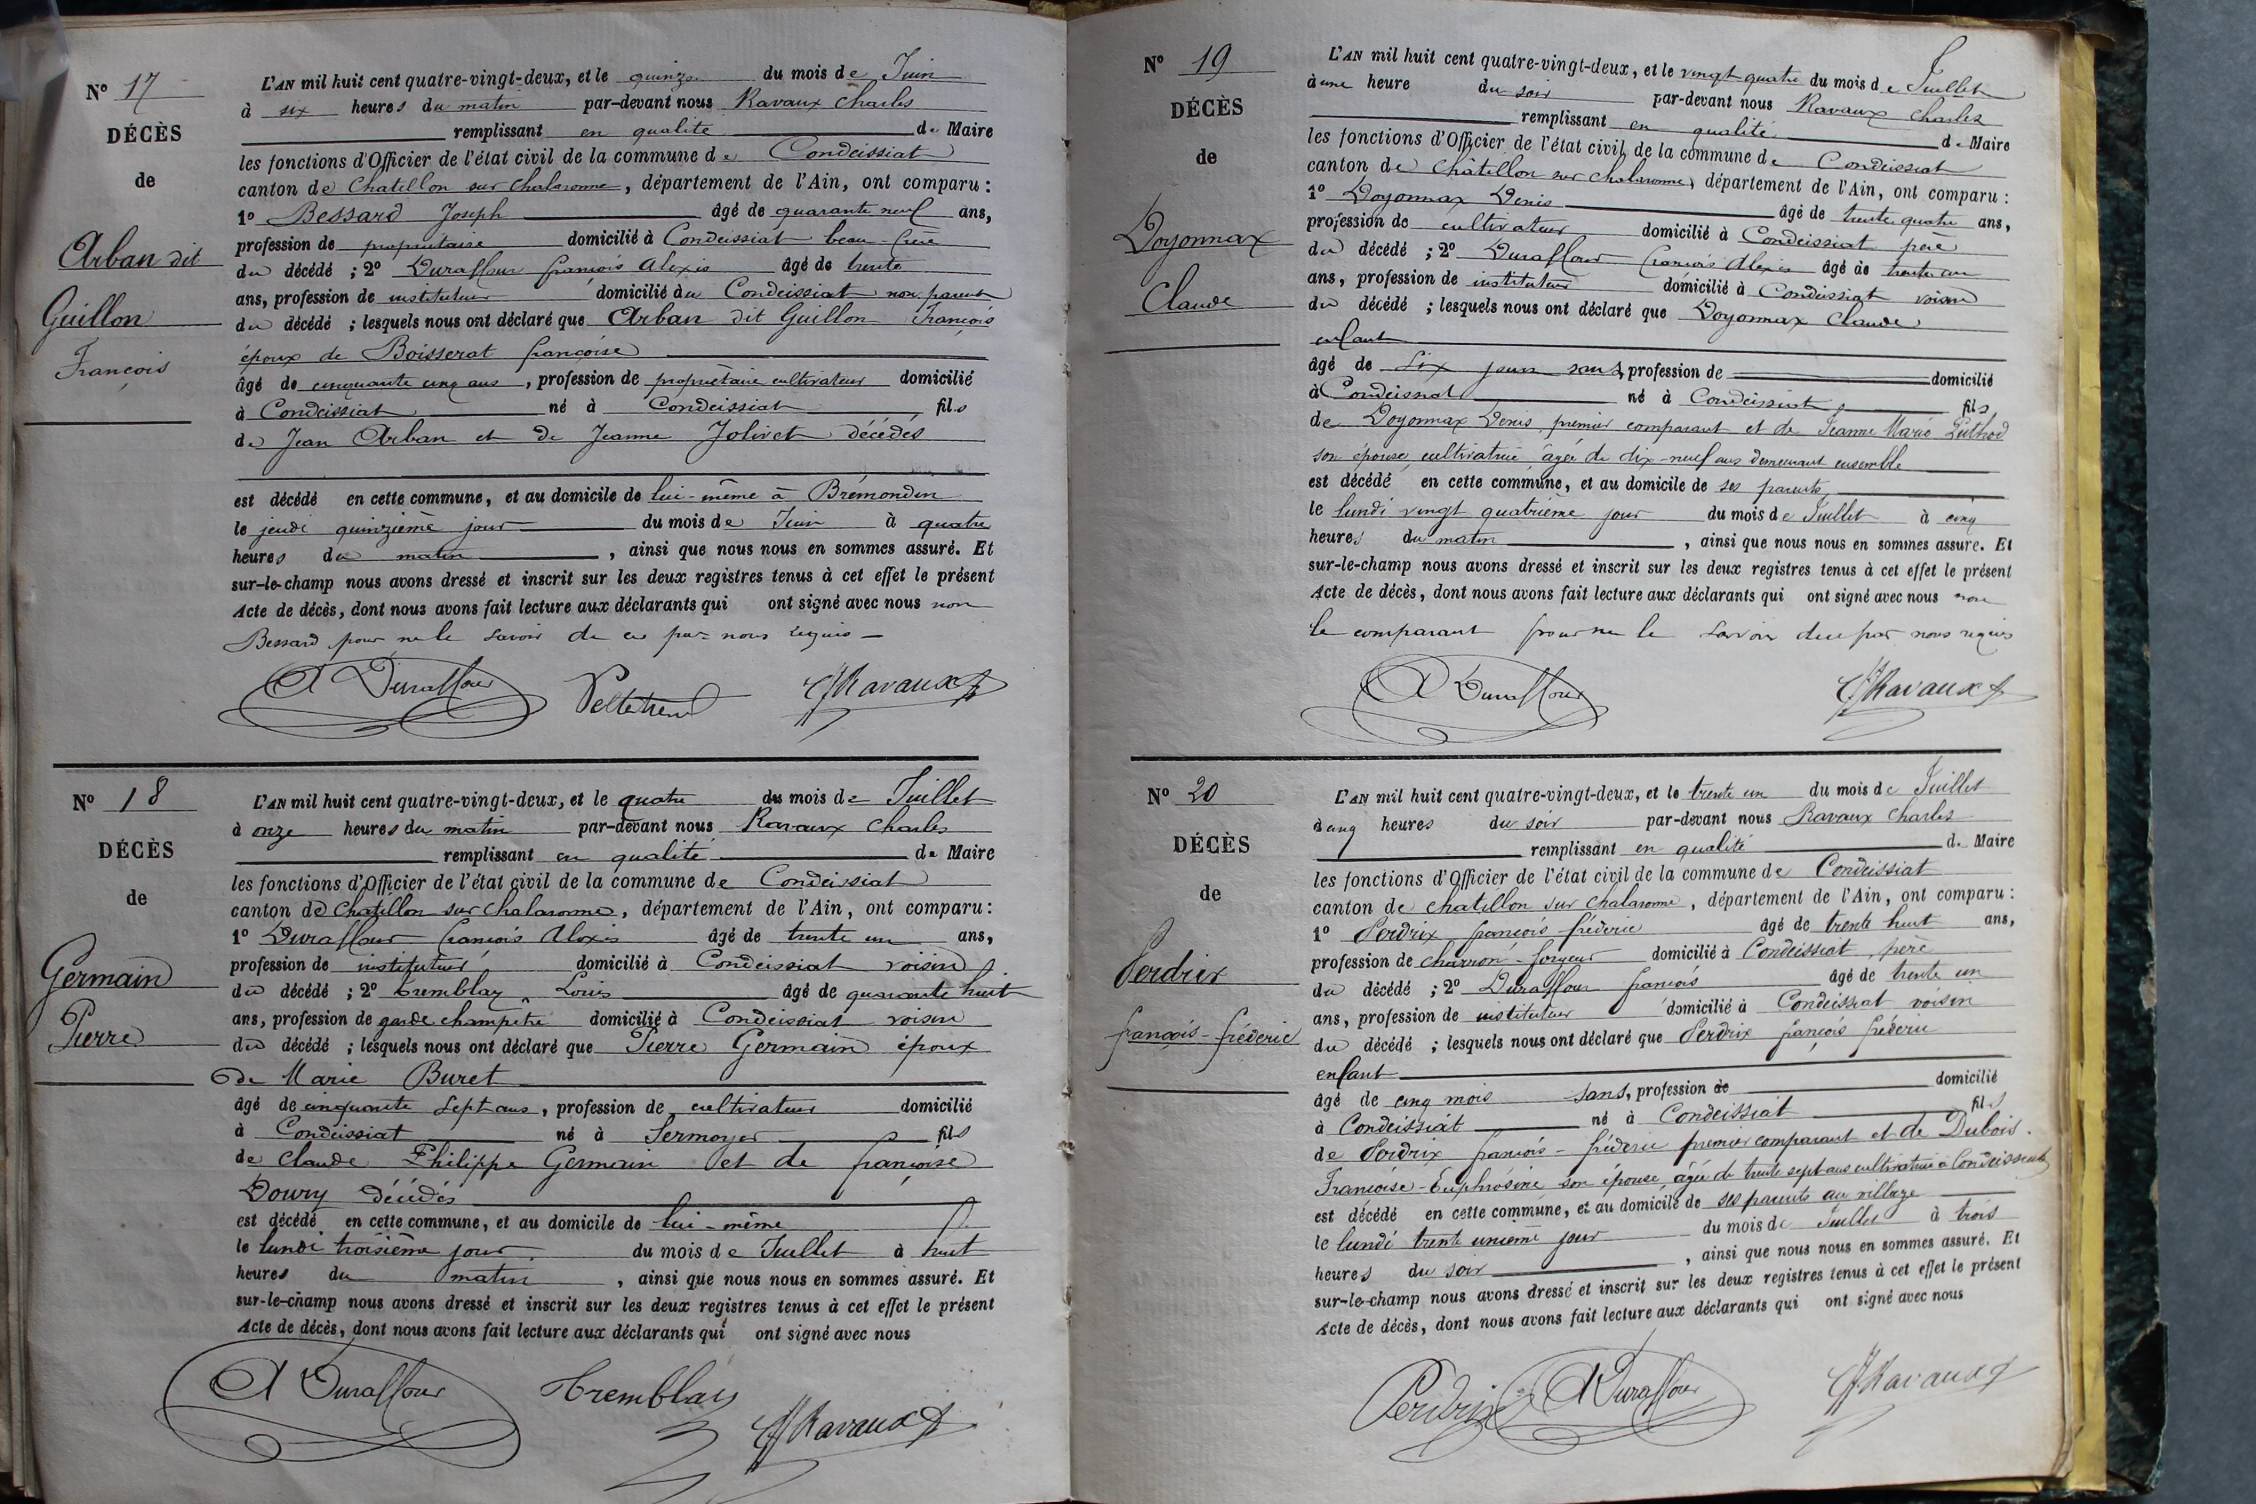 N° 17
DÉCÈS
de
Arban dit
Guillon
François
L'AN mil huit cent quatre-vingt-deux, et le quinze du mois de Juin
à six heures du matin par-devant nous Ravaux Charles
remplissant en qualité de Maire
les fonctions d'Officier de l'état civil de la commune de Condeissiat
canton de Chatillon sur Chalaronne, département de l'Ain, ont comparu :
1° Bessard Joseph âgé de quarante neuf ans,
profession de propriétaire domicilié à Condeissiat beau-frère
du décédé ; 2° Duraffour françois Alexis âgé de trente
ans, profession de instituteur domicilié à Condeissiat non parent
du décédé ; lesquels nous ont déclaré que Arban dit Guillon François
époux de Boisserat françoise
âgé de cinquante cinq ans, profession de propriétaire cultivateur domicilié
à Condeissiat né à Condeissiat, fils
de Jean Arban et de Jeanne Jolivet décédés
est décédé en cette commune, et au domicile de lui-même à Brémondin
le jeudi quinzième jour du mois de Juin à quatre
heures du matin, ainsi que nous nous en sommes assuré. Et
sur-le-champ nous avons dressé et inscrit sur les deux registres tenus à cet effet le présent
Acte de décès, dont nous avons fait lecture aux déclarants qui ont signé avec nous non
Bessard pour ne le savoir de ce par nous requis
A Duraffour Ravaux
N° 18
DÉCÈS
de
Germain
Pierre
L'AN mil huit cent quatre-vingt-deux, et le quatre du mois de Juillet
à onze heures du matin par-devant nous Ravaux Charles
remplissant en qualité de Maire
les fonctions d'Officier de l'état civil de la commune de Condeissiat
canton de Chatillon sur Chalaronne, département de l'Ain, ont comparu :
1° Duraffour françois Alexis âgé de trente un ans,
profession de instituteur domicilié à Condeissiat voisin
du décédé ; 2° Tremblay Louis âgé de quarante huit
ans, profession de garde champêtre domicilié à Condeissiat voisin
du décédé ; lesquels nous ont déclaré que Pierre Germain époux
de Marie Buret
âgé de cinquante sept ans, profession de cultivateur domicilié
à Condeissiat né à Sermoyer fils
de Claude Philippe Germain et de françoise
Doury décédés
est décédé en cette commune, et au domicile de lui-même
le lundi troisième jour du mois de Juillet à huit
heures du matin, ainsi que nous nous en sommes assuré. Et
sur-le-champ nous avons dressé et inscrit sur les deux registres tenus à cet effet le présent
Acte de décès, dont nous avons fait lecture aux déclarants qui ont signé avec nous
A Duraffour Tremblay Ravaux
N° 19
DÉCÈS
de
Doyonnax
Claude
L'AN mil huit cent quatre-vingt-deux, et le vingt quatre du mois de Juillet
à une heure du soir par-devant nous Ravaux Charles
remplissant en qualité de Maire
les fonctions d'Officier de l'état civil de la commune de Condeissiat
canton de Châtillon sur Chalaronne, département de l'Ain, ont comparu :
1° Doyonnax Denis âgé de trente quatre ans,
profession de cultivateur domicilié à Condeissiat père
du décédé ; 2° Duraffour François Alexis âgé de trente un
ans, profession de instituteur domicilié à Condeissiat voisin
du décédé ; lesquels nous ont déclaré que Doyonnax Claude
enfant
âgé de six jours sans, profession de domicilié
à Condeissiat né à Condeissiat, fils
de Doyonnax Denis, premier comparant et de Jeanne Marie
son épouse, cultivatrice âgée de dix-neuf ans demeurant ensemble
est décédé en cette commune, et au domicile de ses parents,
le lundi vingt quatrième jour du mois de Juillet à cinq
heures du matin, ainsi que nous nous en sommes assuré. Et
sur-le-champ nous avons dressé et inscrit sur les deux registres tenus à cet effet le présent
Acte de décès, dont nous avons fait lecture aux déclarants qui ont signé avec nous non
le comparant pour ne le savoir de ce par nous requis
A Duraffour Ravaux
N° 20
DÉCÈS
de
Perdrix
françois-fréderic
L'AN mil huit cent quatre-vingt-deux, et le trente un du mois de Juillet
à cinq heures du soir par-devant nous Ravaux Charles
remplissant en qualité de Maire
les fonctions d'Officier de l'état civil de la commune de Condeissiat
canton de Chatillon sur Chalaronne, département de l'Ain, ont comparu :
1° Perdrix françois fréderic âgé de trente huit ans,
profession de charron-forgeur domicilié à Condeissiat, père
du décédé ; 2° Duraffour françois âgé de trente un
ans, profession de instituteur domicilié à Condeissiat voisin
du décédé ; lesquels nous ont déclaré que Perdrix françois fréderic
enfant
âgé de cinq mois sans, profession de domicilié
à Condeissiat né à Condeissiat fils
de Perdrix françois-fréderic premier comparant et de Dubois
Françoise-Euphrosine son épouse, âgée de trente sept ans cultivatrice à Condeissiat
est décédé en cette commune, et au domicile de ses parents au village
le lundi trente unième jour du mois de Juillet à trois
heures du soir, ainsi que nous nous en sommes assuré. Et
sur-le-champ nous avons dressé et inscrit sur les deux registres tenus à cet effet le présent
Acte de décès, dont nous avons fait lecture aux déclarants qui ont signé avec nous
Perdrix A Duraffour Ravaux